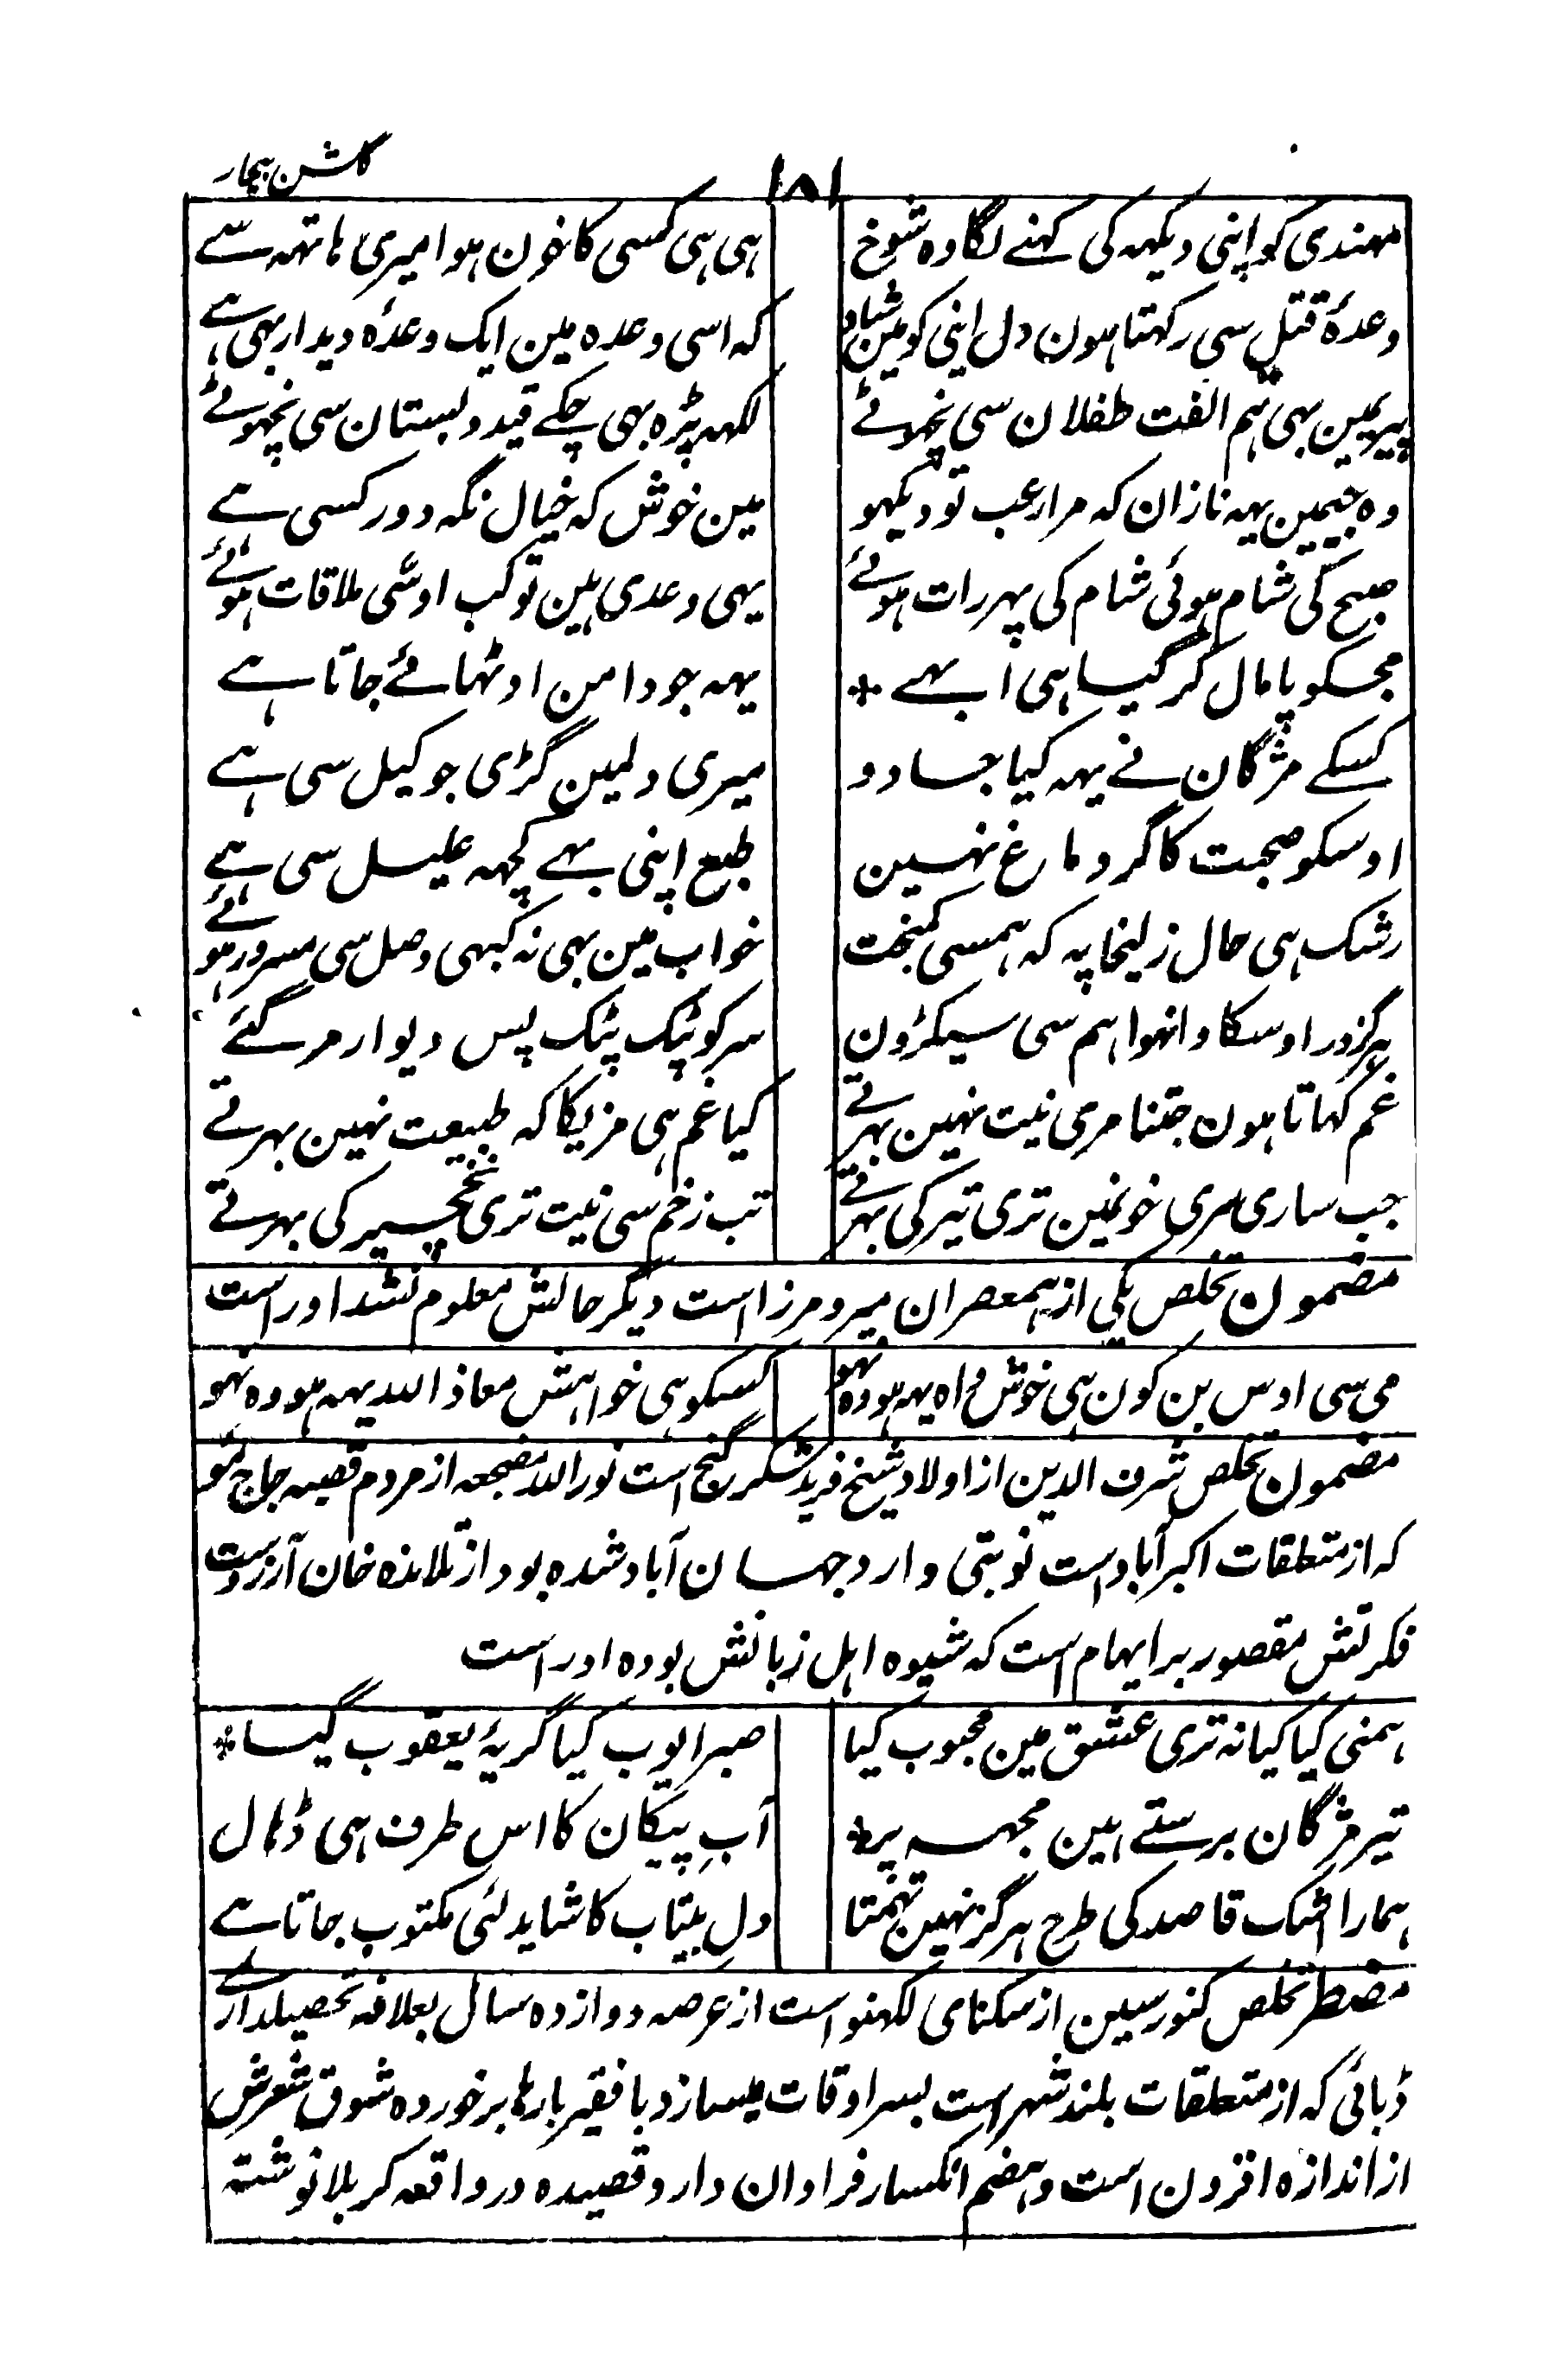 گلشن بیخار
۱۸۱
مہندی کو اپنی دیکہہ کی کہنے لگا وہ شوخ
ہی ہی کسی کا خون ہوا میری ہاتہہ سے
وعدۂ قتل سی رکہتا ہون دل اپنی کو مین شاد
کہ اسی وعدہ مین ایک وعدۂ دیدار بہی ہے
پیریمین بہی ہم الفت طفلان سی نچہوٹے
لکہہ پڑہ بہی چکے قید دبستان سی نچہوٹے
وہ جیمین یہہ نازان کہ مرا رعب تو دیکہو
مین خوش کہ خیال نگہ دور کسی ہے
صبح کی شام ہوئی شام کی پہر رات ہوئے
یہی وعدی ہین تو کب اوسّی ملاقات ہوئے
مجسکو پامال کر گیا ہی ابہے
یہہ جو دامن اوٹہائے جاتا ہے
کسکے مژگان نے یہہ کیا جادو
میری دلمین گڑی جو کیل سی ہے
اوسکو صحبت کا گر دماغ نہین
طبع اپنی بہے کچہہ علیل سی ہے
رشک ہی حال زلیخا پہ کہ ہمسی کمبخت
خواب مین بہی نہ کبہی وصل سی مسرور ہوئے
ہرگز در اوسکا وا نہوا ہم سی سیکڑون
سر کو پٹک پٹک پس دیوار مر گئے
غم کہاتا ہون جتنا مری نیت نہین بہرتے
کیا غم ہی مزیکا کہ طبیعت نہین بہرتے
جب ساری سری خونمین تری تیر کی بہرتے
تب زخم سی نیت تری نخچیر کی بہرتے
مضمون تخلص یکی از ہمعصران میر و مرزا است دیگر حالش معلوم نشد اوراست
می سی اوس بن کون ہی خوش واہ یہہ ہو وہ نہو
کسکو ہی خواہش معاذ اللہ یہہ ہو وہ نہو
مضمون تخلص شرف الدین از اولاد شیخ فرید شکر گنج است نور اللہ مضجعہ از مردم قصبہ جاج مئو
کہ از متعلقات اکبرآباد است نوبتی وارد جہان آباد شدہ بود از تلامذہ خان آرزوست
فکرتش مقصور بر ایہام است کہ شیوہ اہل زبانش بودہ اوراست
ہمنی کیا کیا نہ تری عشق مین محبوب کیا
صبر ایوب کیا گریۂ یعقوب کیا
تیر مژگان برستے ہین مجہہ پر
آبِ پیکان کا اس طرف ہی ڈہال
ہمارا اشک قاصد کی طرح ہرگز نہین تہمتا
دلِ بیتاب کا شاید لئی مکتوب جاتا ہے
مضطر تخلص کنور سین از سکنای لکہنو است از عرصہ دوازدہ سال بعلاقہ تحصیلداری
ڈبائی کہ از متعلقات بلند شہر است بسر اوقات میسازد با فقیر بارہا برخوردہ شوق شعرش
از اندازہ افزون است وہضم انکسار فراوان دارد قصیدہ در واقعہ کربلا نوشتہ